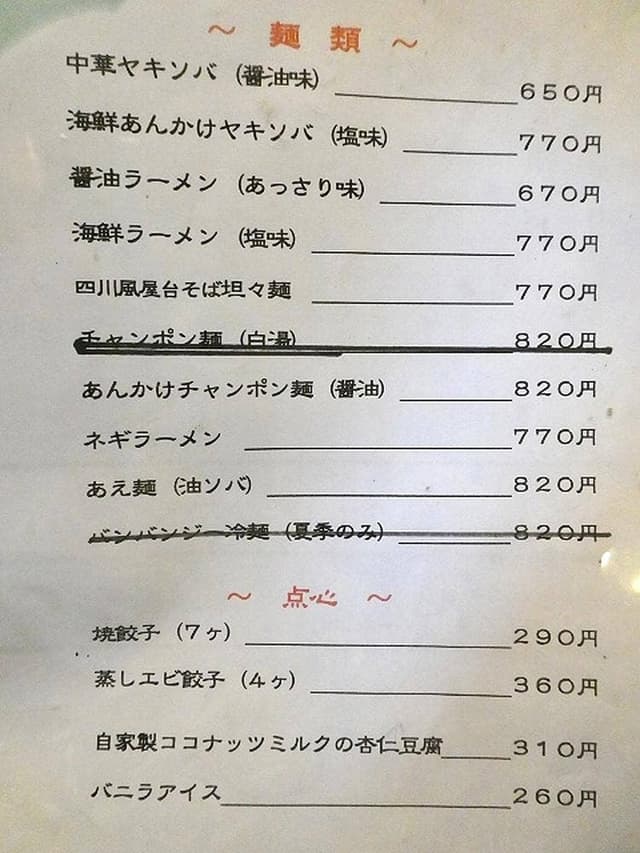 ～ 麺 類 ～
中華ヤキソバ (醤油味) 650円
海鮮あんかけヤキソバ (塩味) 770円
醤油ラーメン (あっさり味) 670円
海鮮ラーメン (塩味) 770円
四川風屋台そば坦々麺 770円
チャンポン麺 (白湯) 820円
あんかけチャンポン麺 (醤油) 820円
ネギラーメン 770円
あえ麺 (油ソバ) 820円
バンバンジー冷麺 (夏季のみ) 820円
～ 点心 ～
焼餃子 (7ヶ) 290円
蒸しエビ餃子 (4ヶ) 360円
自家製ココナッツミルクの杏仁豆腐 310円
バニラアイス 260円